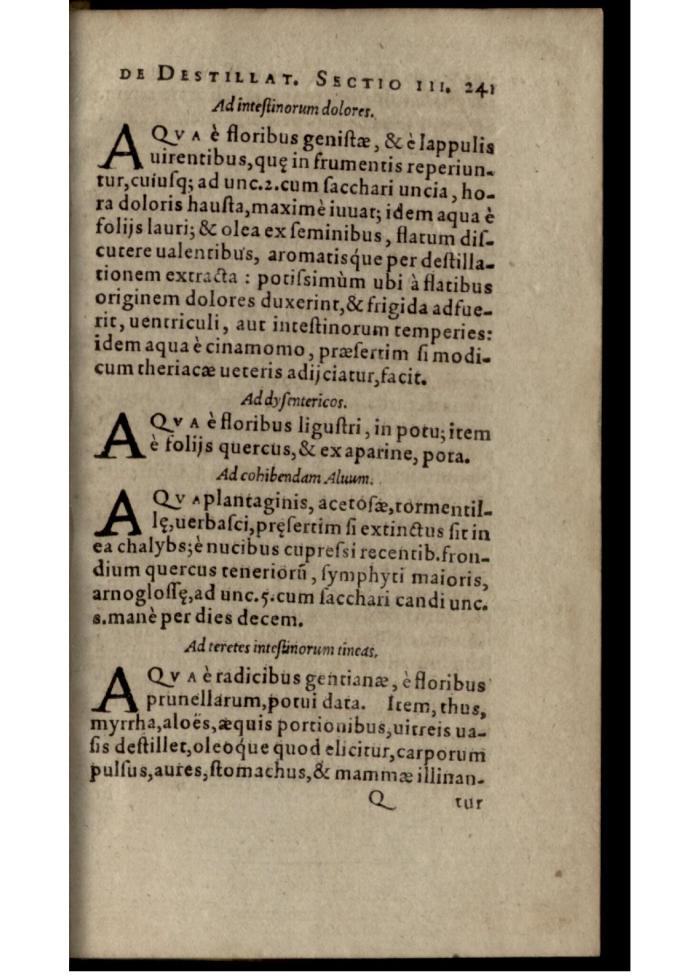 DE DESTILLAT. SECTIO III. 241
Ad inteſtinorum dolores.
AQVA è floribus geniſtæ, & è lappulis
uirentibus, quę in frumentis reperiun-
tur, cuiuſq; ad unc.2.cum ſacchari uncia, ho-
ra doloris hauſta, maximè iuuat; idem aqua è
folijs lauri; & olea ex ſeminibus, flatum diſ-
cutere ualentibus, aromatisq́ue per deſtilla-
tionem extracta : potiſsimùm ubi à flatibus
originem dolores duxerint, & frigida adfue-
rit, uentriculi, aut inteſtinorum temperies:
idem aqua è cinamomo, præſertim ſi modi-
cum theriacæ ueteris adijciatur, facit.
Ad dyſentericos.
AQVA è floribus liguſtri, in potu; item
è folijs quercus, & ex aparine, pota.
Ad cohibendam Aluum.
AQVA plantaginis, acetoſæ, tormentil-
lę, uerbaſci, pręſertim ſi extinctus ſit in
ea chalybs; è nucibus cupreſsi recentib. fron-
dium quercus teneriorũ, ſymphyti maioris,
arnogloſſę, ad unc.5.cum ſacchari candi unc.
s.manè per dies decem.
Ad teretes inteſtinorum tineas.
AQVA è radicibus gentianæ, è floribus
prunellarum, potui data. Item, thus,
myrrha, aloës, æquis portionibus, uitreis ua-
ſis deſtillet, oleóque quod elicitur, carporum
pulſus, aures, ſtomachus, & mammæ illinan-
Q tur